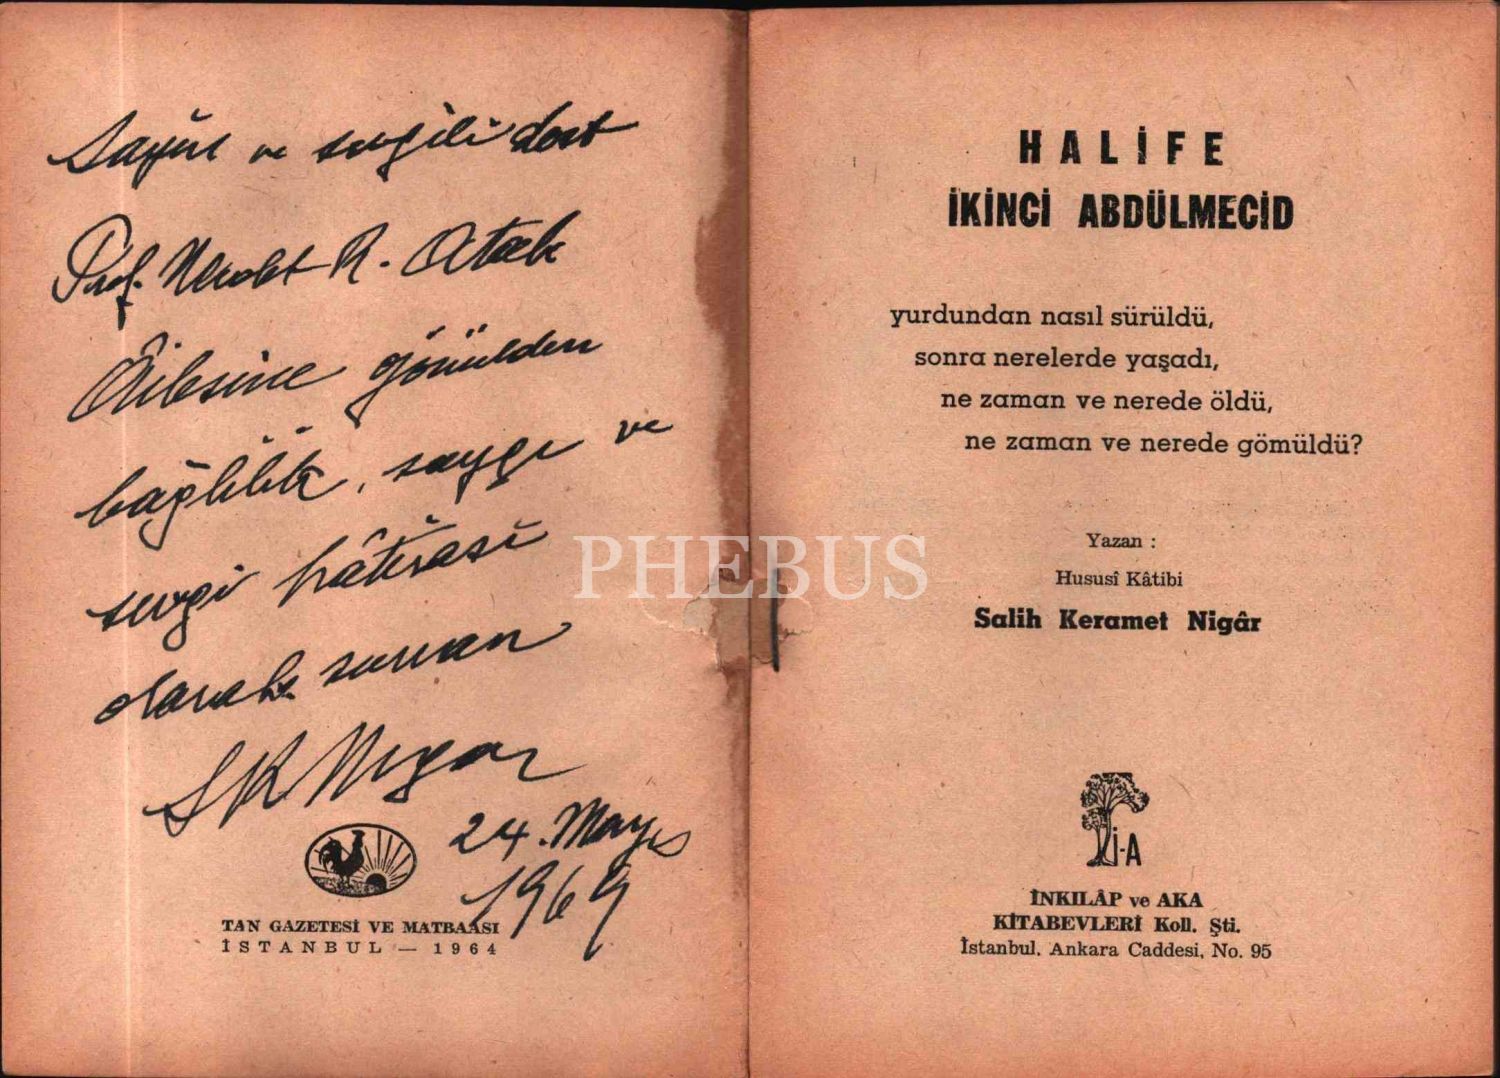 Sayın ve sevgili dost
Prof. R. Atak
Âilesine gönülden
bağlılık, saygı ve
sevgi hâtırası
olarak sunan
SKNigar
24. Mayıs
1969
TAN GAZETESİ VE MATBAASI
İSTANBUL — 1964
HALİFE
İKİNCİ ABDÜLMECİD
yurdundan nasıl sürüldü,
sonra nerelerde yaşadı,
ne zaman ve nerede öldü,
ne zaman ve nerede gömüldü?
Yazan :
Hususî Kâtibi
Salih Keramet Nigâr
İ-A
İNKILÂP ve AKA
KİTABEVLERİ Koll. Şti.
İstanbul, Ankara Caddesi, No. 95
PHEBUS